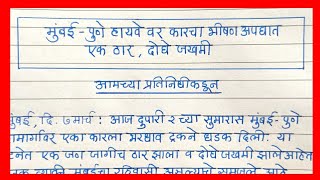 मुंबई - पुणे हायवे वर कारचा भीषण अपघात
एक ठार, दोघे जखमी
आमच्या प्रतिनिधीकडून
मुंबई, दि. ७ मार्च : आज दुपारी २ च्या सुमारास मुंबई- पुणे
मार्गावर एका कारला भरधाव ट्रकने धडक दिली. या
टनेत एक जण जागीच ठार झाला व दोघे जखमी झाले आहेत